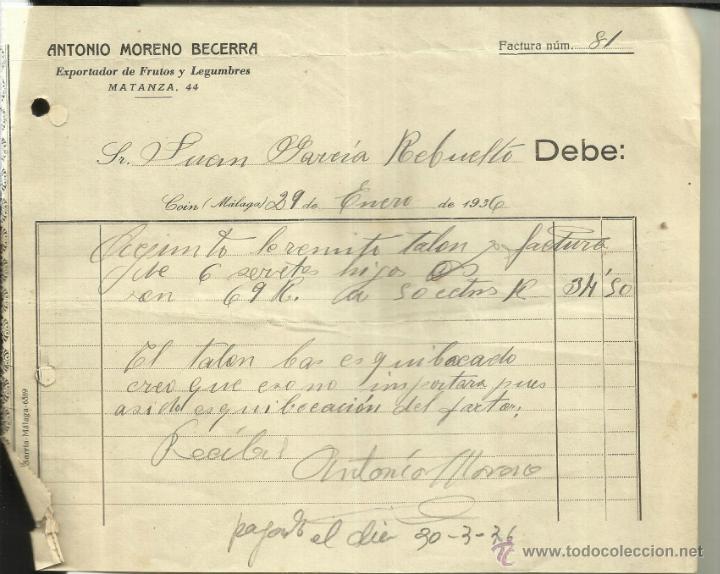 ANTONIO MORENO BECERRA
Exportador de Frutos y Legumbres
MATANZA, 44
Factura núm. 81
Sr. Juan García Rebuelto Debe:
Coin (Málaga) 29 de Enero de 1936
le remito talon factura
de 6 seretes higos
con 69 K. a 50 ctms K 34'50
El talon bas esquibocado
creo que eso no importara pues
asido esquibocación del factor;
Recibi
Antonio Moreno
pagado el dia 30-3-36
Málaga-6369
© www.todocoleccion.net